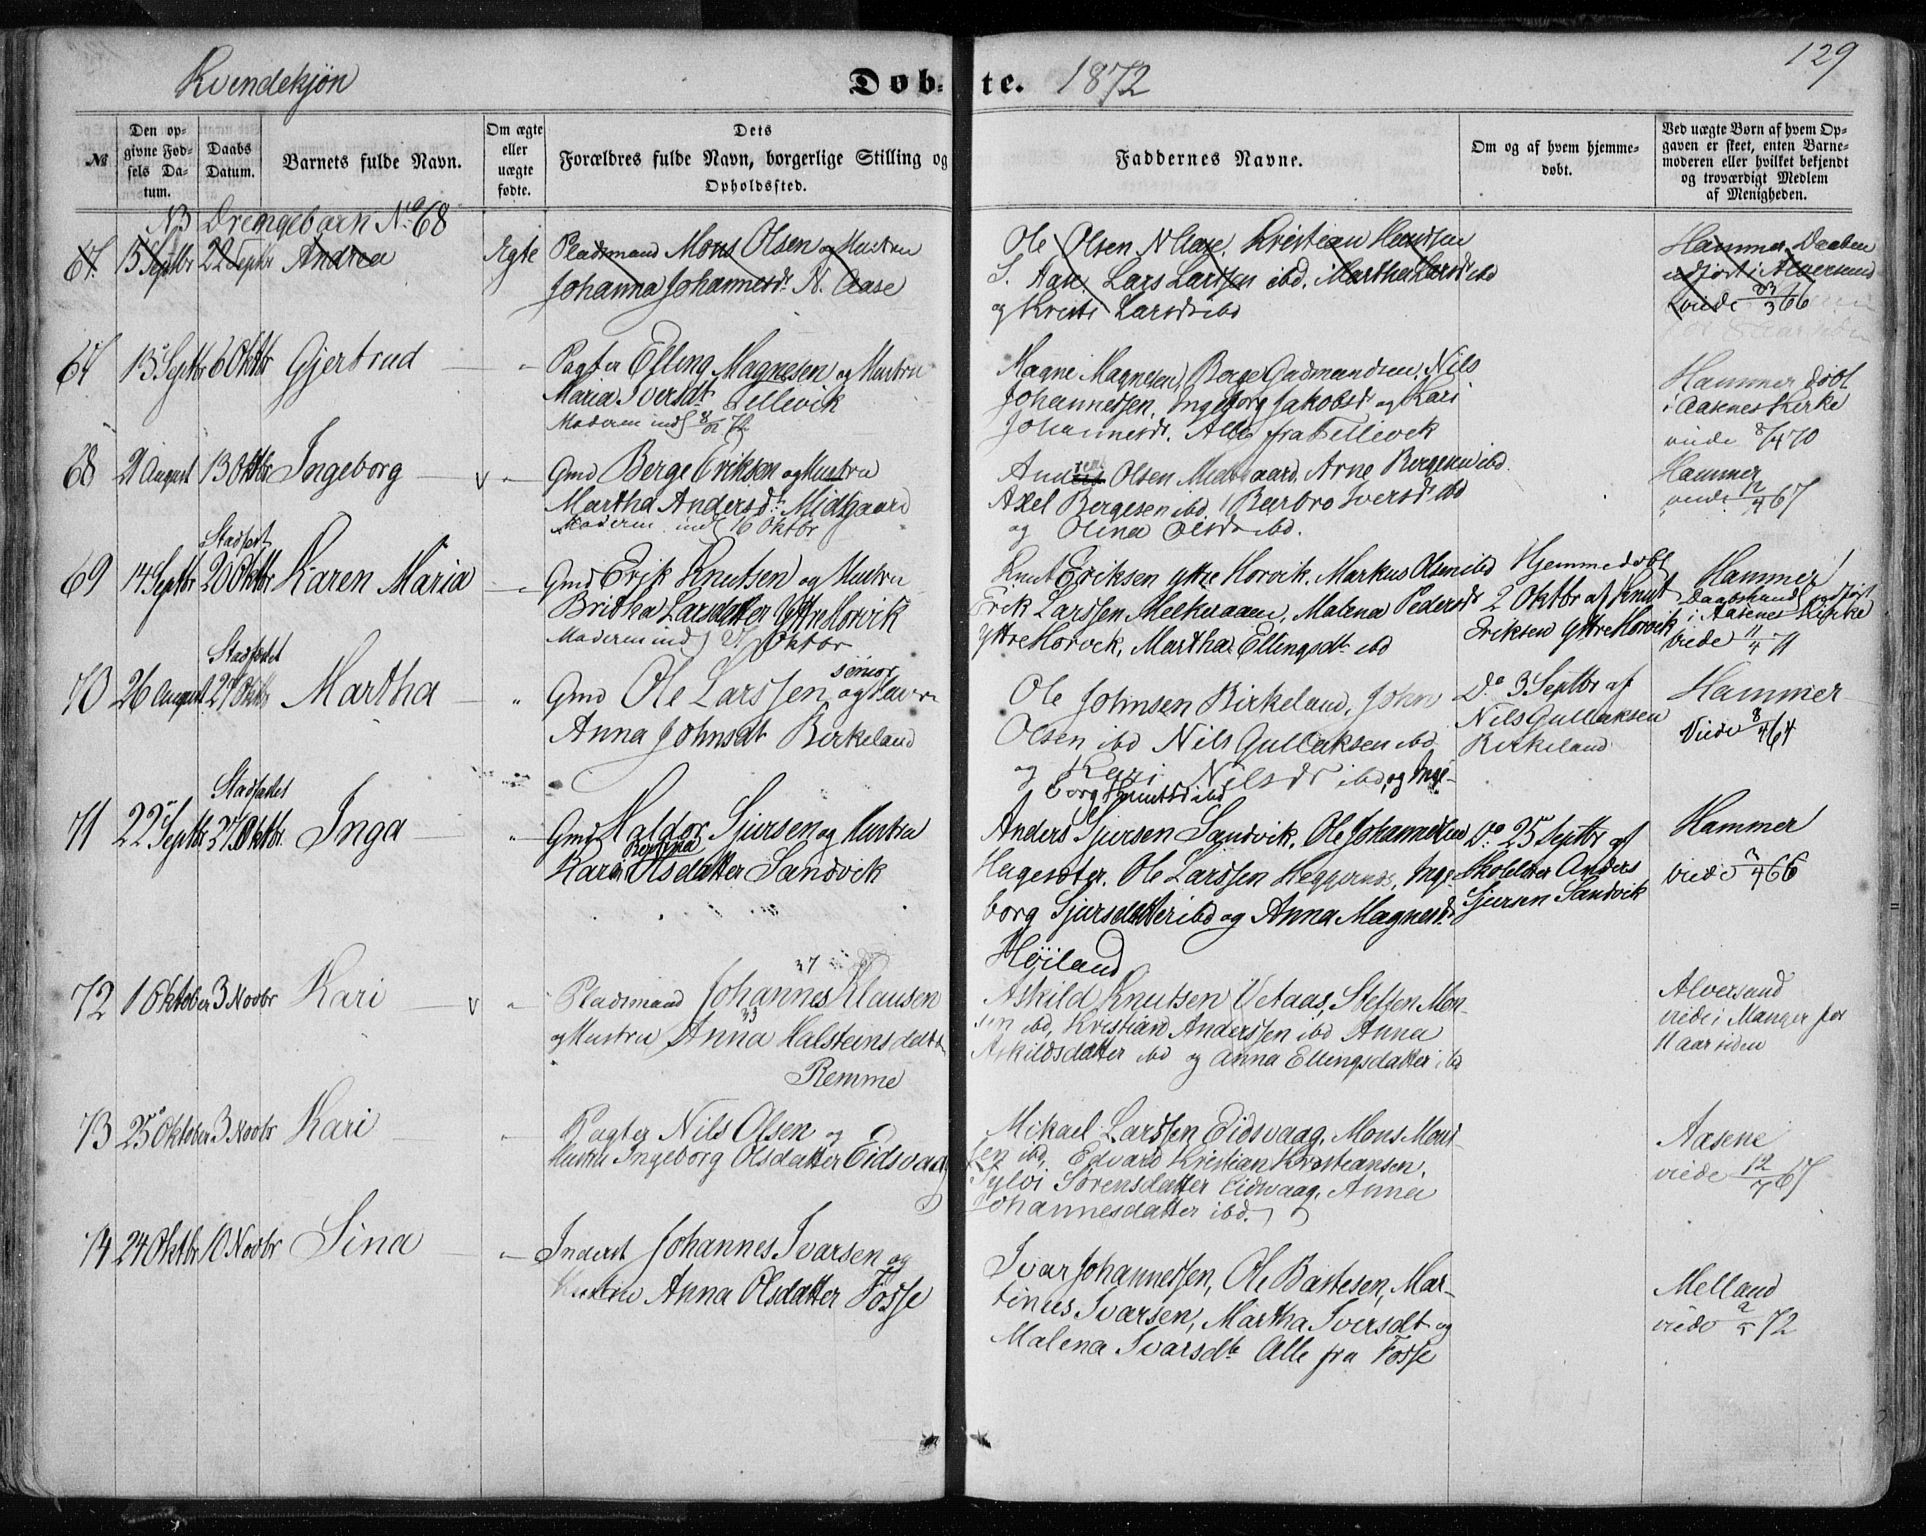 129
Kvindekjøn
Døbte. 1872
№
Den opgivne Fødsels Datum.
Daabs Datum.
Barnets fulde Navn.
Om ægte eller uægte fødte.
Dets
Forældres fulde Navn, borgerlige Stilling og
Opholdssted.
Faddernes Navne.
Om og af hvem hjemmedøbt.
Ved uægte Børn af hvem Opgaven er skeet, enten Barnemoderen eller hvilket bekjendt og troværdigt Medlem af Menigheden.
NB Drengebarn No 68
67. 15 Septbr 22 Septbr Andrea Egte Pladsmand Mons Olsen og Hustru
Johanna Johannesdr N. Aase
Ole Olsen N Aase, Kristian Knudsen
S. Aase, Lars Larssen ibd. Martha Larsdr ibd
og Larsdr ibd
Hammer Daaben
udført i Alversund
viede 66
67 15 Septbr 6 Oktbr Gjertrud " Pagter Elling Magnesen og Hustru
Maria Iversdt Tellevik
Moderen indl 72
Magne Magnesen, Berge Gudmundsen, Nils
Johannessen, Ingeborg Jakobsdr og Kari
Johannesdr. Alle fra Tellevik
Hammer døbt
i Aasene Kirke
viede 8/4 70
68 21 August 13 Oktbr Ingeborg v " Gmd Berge Eriksen og Hustru
Martha Andersdr Midtgaard
Moderen indl 16 Oktbr
Olsen Midtgaard, Arne Bergesen ibd
Axel Bergesen ibd, Barbro Iversdr ibd
og Olina Olsdr ibd.
Hammer
viede 12/4 67
69 14 Septbr Stadfæst 20 Oktbr Karen Maria " Gmd Erik Knutsen og Hustru
Britha Larsdatter Ytre Horvik
Moderen indl 27 Oktbr
Knut Eriksen Ytre Horvik, Markus Olsen ibd
Erik Larssen Melkeraaen, Malena Pedersdr
Ytre Horvik, Martha Ellingsdtr ibd
Hjemmedøbt
2 Oktbr af Knut
Eriksen Ytre Horvik
Hammer
i Aasenes Kirke
viede 11/4 71
70 26 August Stadfæstet 27 Oktbr Martha " Gmd Ole Larssen senior og Hustru
Anna Johnsdt Birkeland
Ole Johnsen Birkeland, John
Olsen ibd Nils Gullaksen ibd
og Kari Nilsdr ibd, og Inge-
borg Knutsdr ibd
Do 3 Septbr af
Nils Gullaksen
Birkeland
Hammer
Viede 8/4 64
71 22 Septbr Stadfæstet 27 Oktbr. Inga " Gmd Haldor Sjursen og Hustru
Kari Bertina Olsdatter Sandvik
Anders Sjursen Sandvik, Ole Johannessen
Hagesæter, Ole Larssen Heggernes, Inge-
borg Sjursdatter ibd og Anna Magnesdr
Høiland
Do 25 Septbr af
Skoleholder Anders
Sjursen Sandvik
Hammer
viede 66
72 1 Oktober 3 Novbr Kari v " Pladsmand Johannes Klausen 37
og Hustru Anna Halsteinsdatter 33
Remme
Askild Knutsen Vetaas, Steffen Mon-
sen ibd, Kristian Anderssen ibd Anna
Askildsdatter ibd og Anna Ellingsdatter ibd
Alversund
viede i Manger for
11 aar siden
73 25 Oktober 3 Novbr Kari " Pagter Nils Olsen og
Hustru Ingeborg Olsdatter Eidsvaag
Mikael Larssen Eidsvaag, Mons Mon-
sen ibd, Edvard Kristian Kristiansen,
Sylvi Sørensdatter Eidsvaag, Anna
Johannesdatter ibd.
Aasene
viede 12/7 67
74 24 Oktbr 10 Novbr Sina " Inderst Johannes Ivarsen og
Hustru Anna Olsdatter Fosse
Ivar Johannessen, Ole Baltesen, Mar-
tinus Ivarsen, Martha Iversdt og
Malena Ivarsdtr Alle fra Fosse
Melland
viede 72